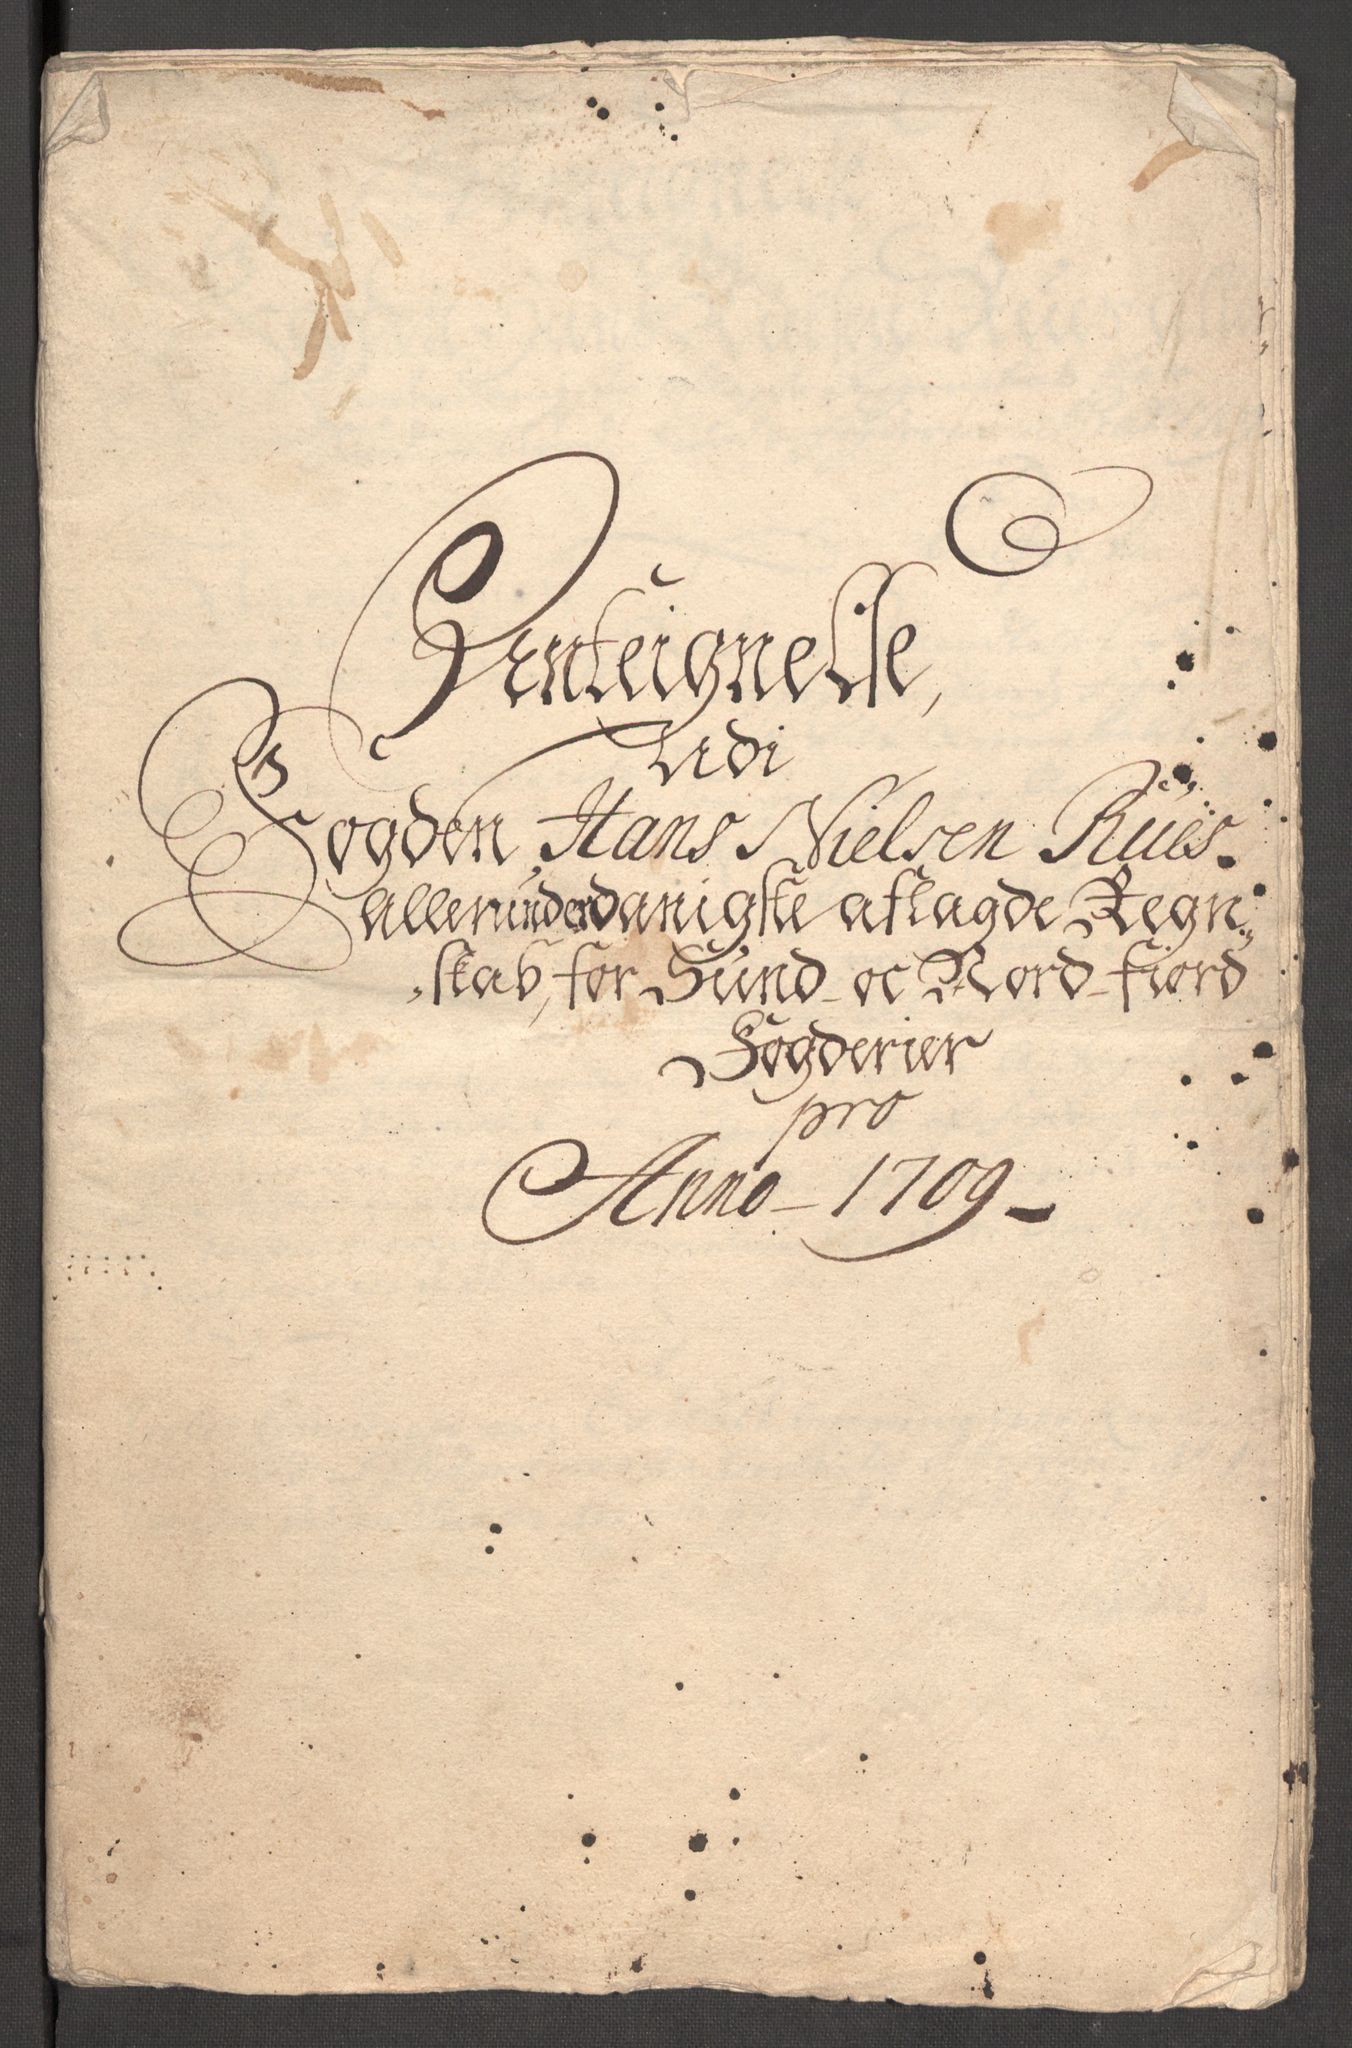 Anteignelse,
Udi
Fogden, Hans Nielsen Rües.
allerunderdanigste aflagde Regn„
„skab, for Sünd- oc Nord-fiord
Fogderier
pro
Anno- 1709-